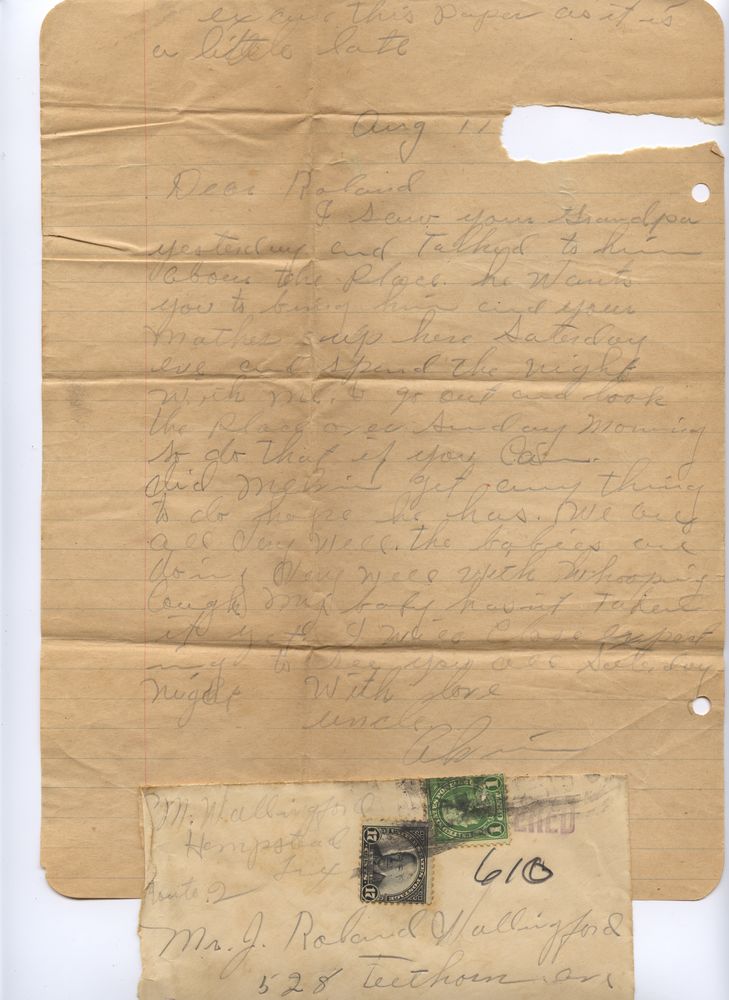 excuse this paper as it is
a little late
Aug 11
Dear Roland
I saw your Grandpa
yesterday and Talked to him
about the Place. he Wants
you to bring him and your
Mother up here Saterday
eve and spend the night
With me, & go out and look
the place over Sunday Morning
so do that if you Can.
did Melvin get any thing
to do hope he has. We are
all very Well. the babies are
doing very Well With Whooping
Cough My baby hasnt taken
it yet. I Will Close expect
ing to see you all Saterday
Night With love
uncle
M. Wallingford
Hempstead
Tex
Route 2
1 1
17 17
U.S. POSTAGE
ERED
610
Mr. J. Roland Wallingford
528